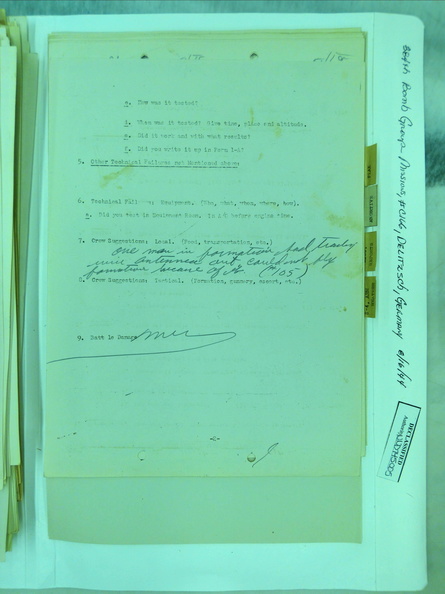 e. How was it tested?
d. When was it tested? Give time, place and altitude.
e. Did it work and with what results?
f. Did you write it up in Form 1-A?
5. Other Technical Failures not Mentioned above:
6. Technical Failure: Equipment. (Who, what, when, where, how).
a. Did you test in Equipment Room, in A/C before engine time.
7. Crew Suggestions: Local. (Food, transportation, etc.)
one man in formation had trailing
wire antennae out, could not fly
formation because of it. (#105)
8. Crew Suggestions: Tactical. (formation, gunnery, escort, etc.)
9. Battle Damage
384th Bomb Group Missions, #C166, DELITZSCH, Germany 8/16/44
DECLASSIFIED
Authority